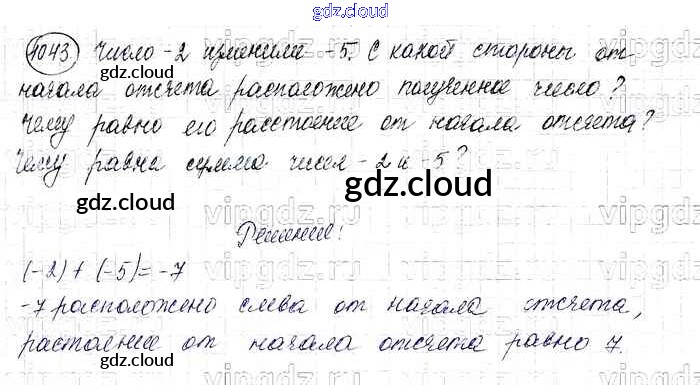 gdz.cloud
1043. Число -2 изменили -5. С какой стороны от
gdz.cloud
начала отсчета расположено полученное число?
Чему равно его расстояние от начала отсчета?
Чему равна сумма чисел -2 и -5?
gdz.cloud
gdz.cloud
vipgdz.ru
Решение:
(-2) + (-5) = -7
-7 расположено слева от начала отсчета,
растоение от начала отсчета равно 7.
gdz.cloud
gdz.cloud